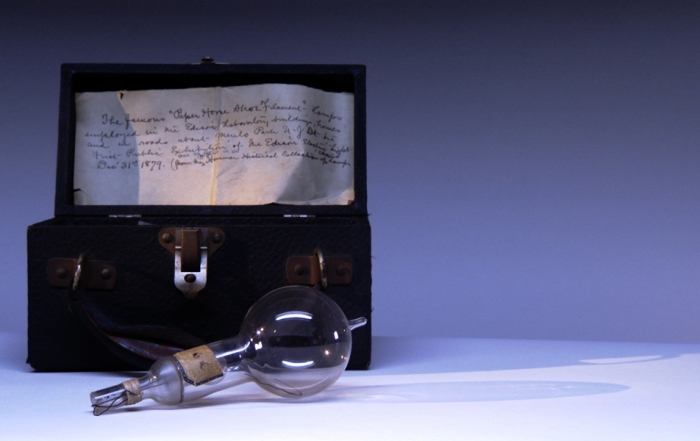 The famous "Paper Horse Shoe Filament" Lamps
employed in Mr Edison's Laboratory building, Lamps
and in roads about Menlo Park N.J. at the
First Public Exhibition of Mr Edison's Electric Light
Dec 31st 1879. (from Hammer Historical Collection of Lamps